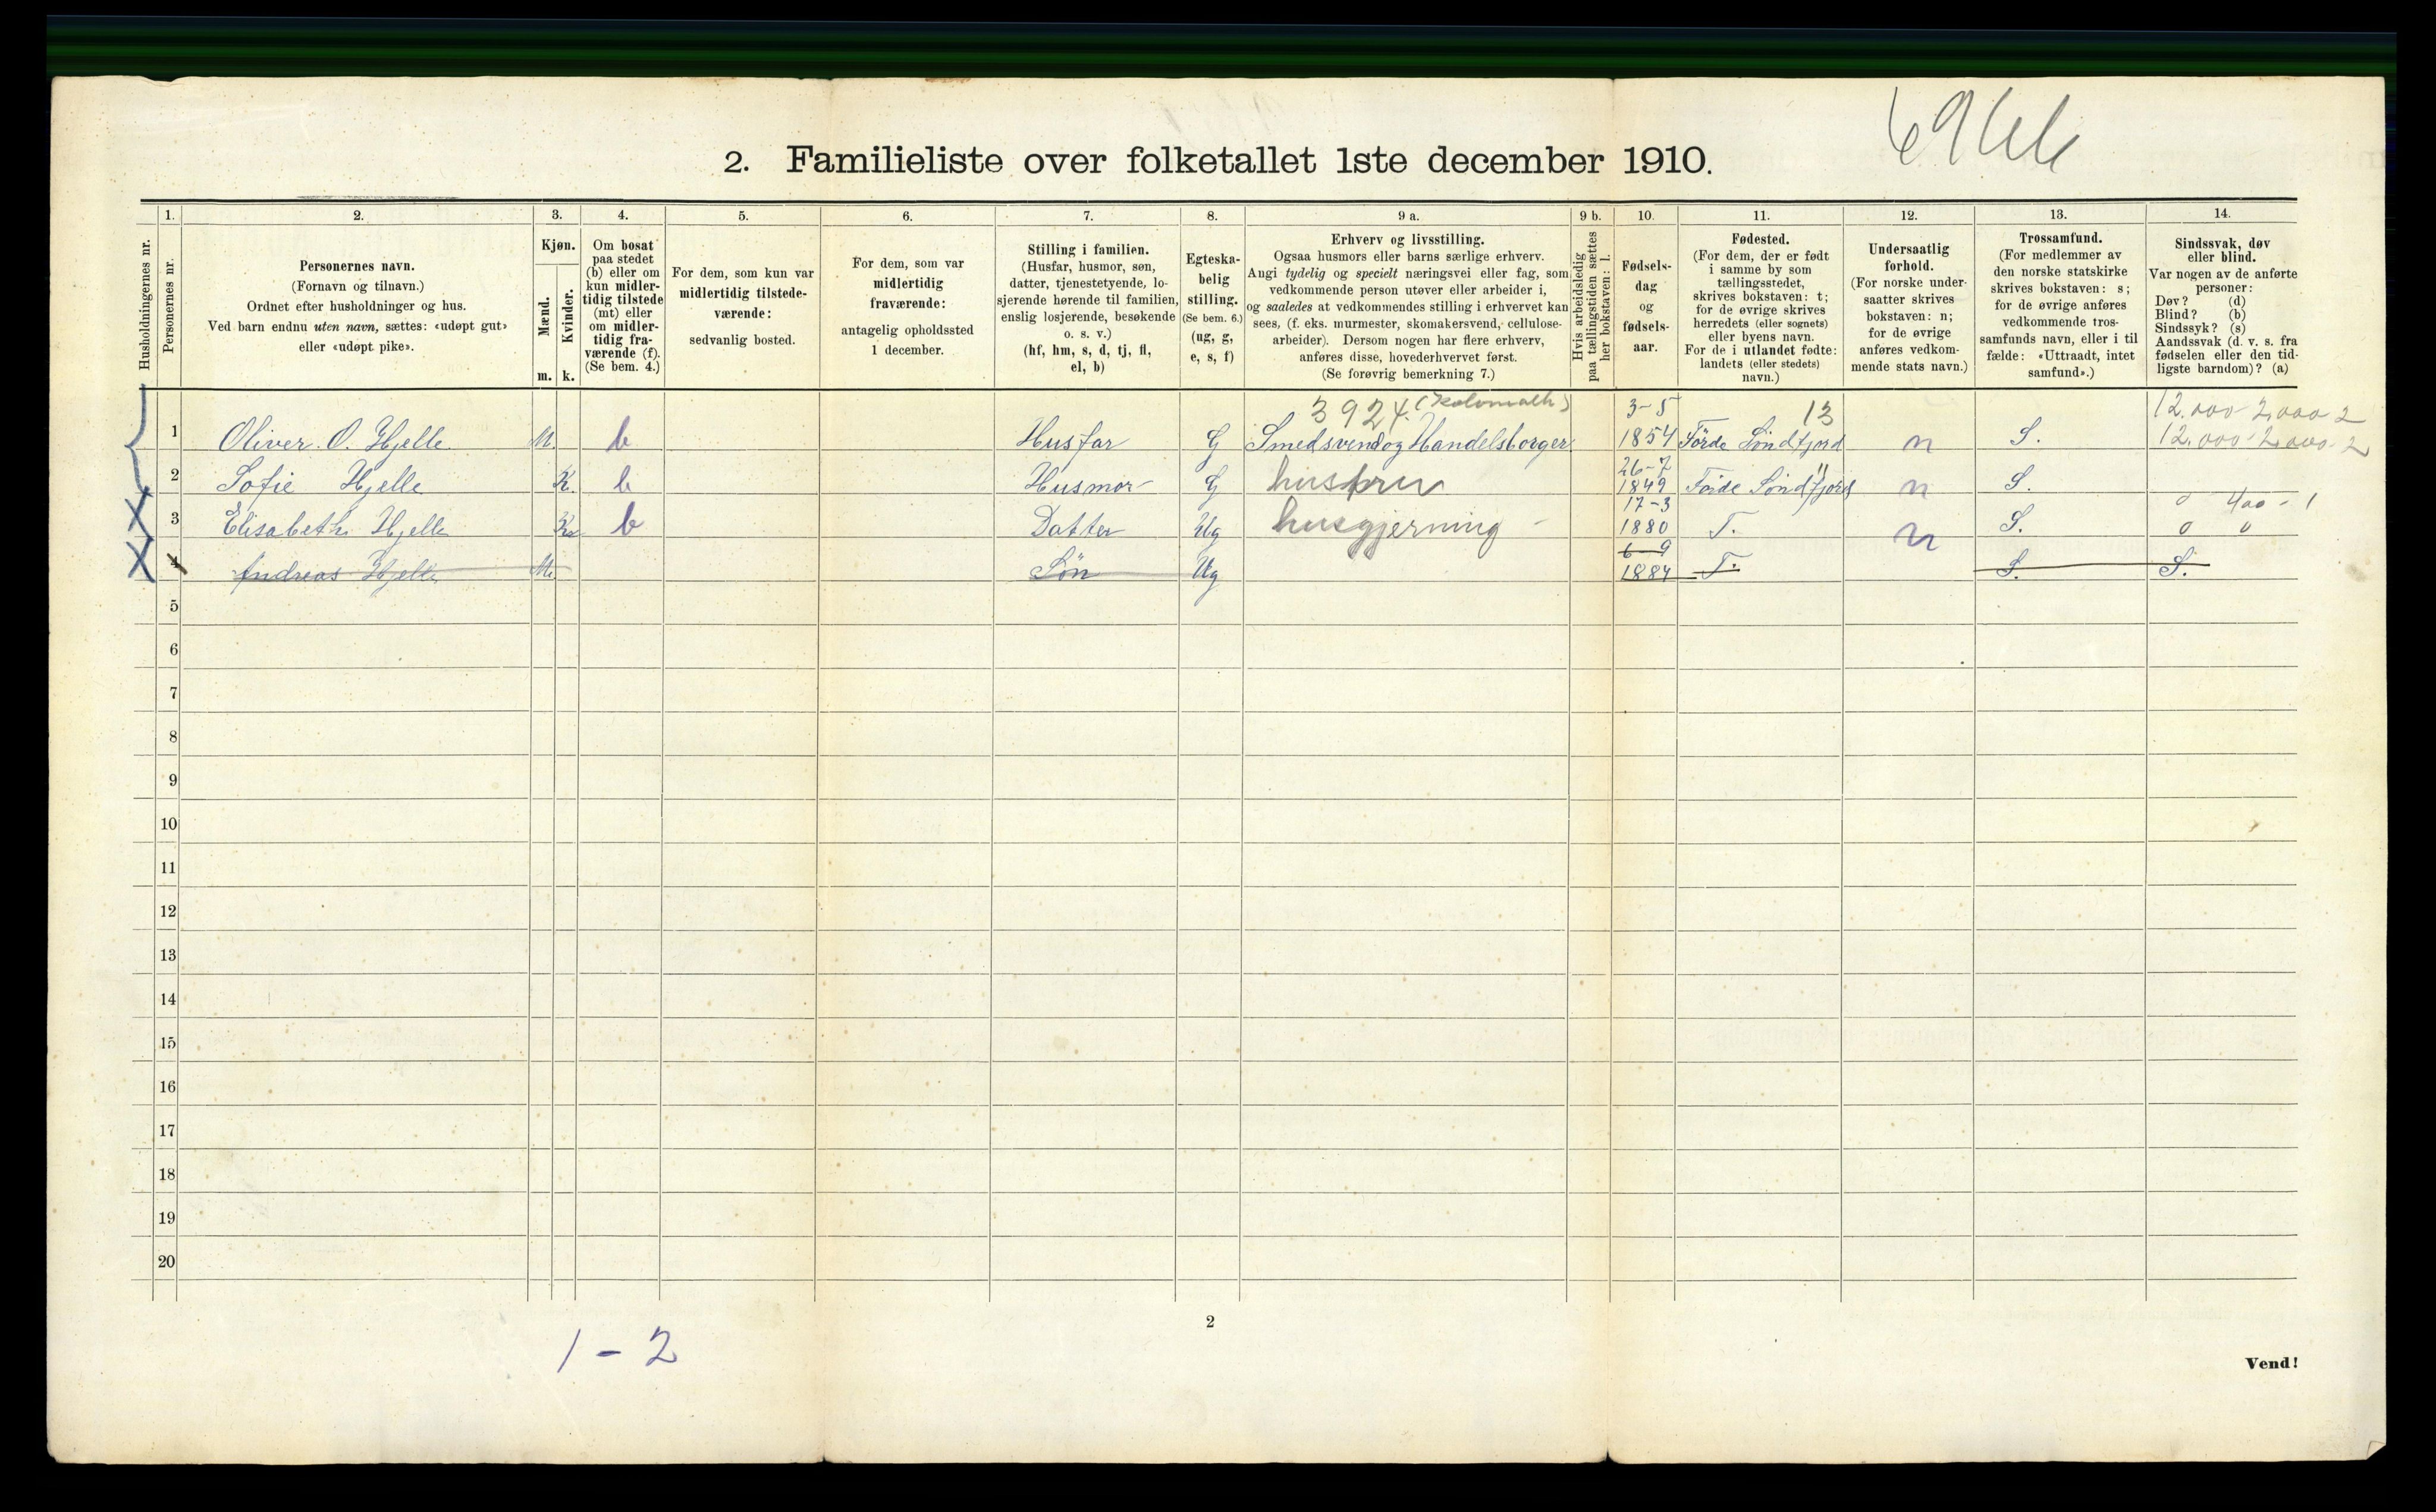 6966
2. Familieliste over folketallet 1ste december 1910.
Husholdningernes nr.
1.
Personernes nr.
2.
Personernes navn.
(Fornavn og tilnavn.)
Ordnet efter husholdninger og hus.
Ved barn endnu uten navn, sættes: «udøpt gut»
eller «udøpt pike».
3.
Kjøn.
Mænd.
Kvinder.
m. k.
4.
Om bosat
paa stedet
(b) eller om
kun midler-
tidig tilstede
(mt) eller
om midler-
tidig fra-
værende (f).
(Se bem. 4.)
5.
For dem, som kun var
midlertidig tilstede-
værende:
sedvanlig bosted.
6.
For dem, som var
midlertidig
fraværende:
antagelig opholdssted
1 december.
7.
Stilling i familien.
(Husfar, husmor, søn,
datter, tjenestetyende, lo-
sjerende hørende til familien,
enslig losjerende, besøkende
o. s. v.)
(hf, hm, s, d, tj, fl,
el, b)
8.
Egteska-
belig
stilling.
(Se bem. 6.)
(ug, g,
e, s, f)
9 a.
Erhverv og livsstilling.
Ogsaa husmors eller barns særlige erhverv.
Angi tydelig og specielt næringsvei eller fag, som
vedkommende person utøver eller arbeider i,
og saaledes at vedkommendes stilling i erhvervet kan
sees, (f. eks. murmester, skomakersvend, cellulose-
arbeider). Dersom nogen har flere erhverv,
anføres disse, hovederhvervet først.
(Se forøvrig bemerkning 7.)
9 b.
Hvis arbeidsledig
paa tællingstiden sættes
her bokstaven: l.
10.
Fødsels-
dag
og
fødsels-
aar.
11.
Fødested.
(For dem, der er født
i samme by som
tællingsstedet,
skrives bokstaven: t;
for de øvrige skrives
herredets (eller sognets)
eller byens navn.
For de i utlandet fødte:
landets (eller stedets)
navn.)
12.
Undersaatlig
forhold.
(For norske under-
saatter skrives
bokstaven: n;
for de øvrige
anføres vedkom-
mende stats navn.)
13.
Trossamfund.
(For medlemmer av
den norske statskirke
skrives bokstaven: s;
for de øvrige anføres
vedkommende tros-
samfunds navn, eller i til
fælde: «Uttraadt, intet
samfund».)
14.
Sindssvak, døv
eller blind.
Var nogen av de anførte
personer:
Døv? (d)
Blind? (b)
Sindssyk? (s)
Aandssvak (d. v. s. fra
fødselen eller den tid-
ligste barndom)? (a)
3924. 3-5 13 12.000 2,000 2
1 Oliver O. Hjelle M. b Husfar G Smedsvend og Handelsborger 1854 Förde Söndfjord n S. 12.000 2,000 2
26-7 "
2 Sofie Hjelle K. b Husmor G husfrue 1849 Förde Söndfjord n S.
17-3 0 400 - 1
3 Elisabeth Hjelle K. b Datter Ug husgjerning - 1880 T. n S. 0 0
6-9
4 Andreas Hjelle M. Sön Ug 1884 T. S. S.
5
6
7
8
9
10
11
12
13
14
15
16
17
18
19
20
2
1 - 2
Vend!